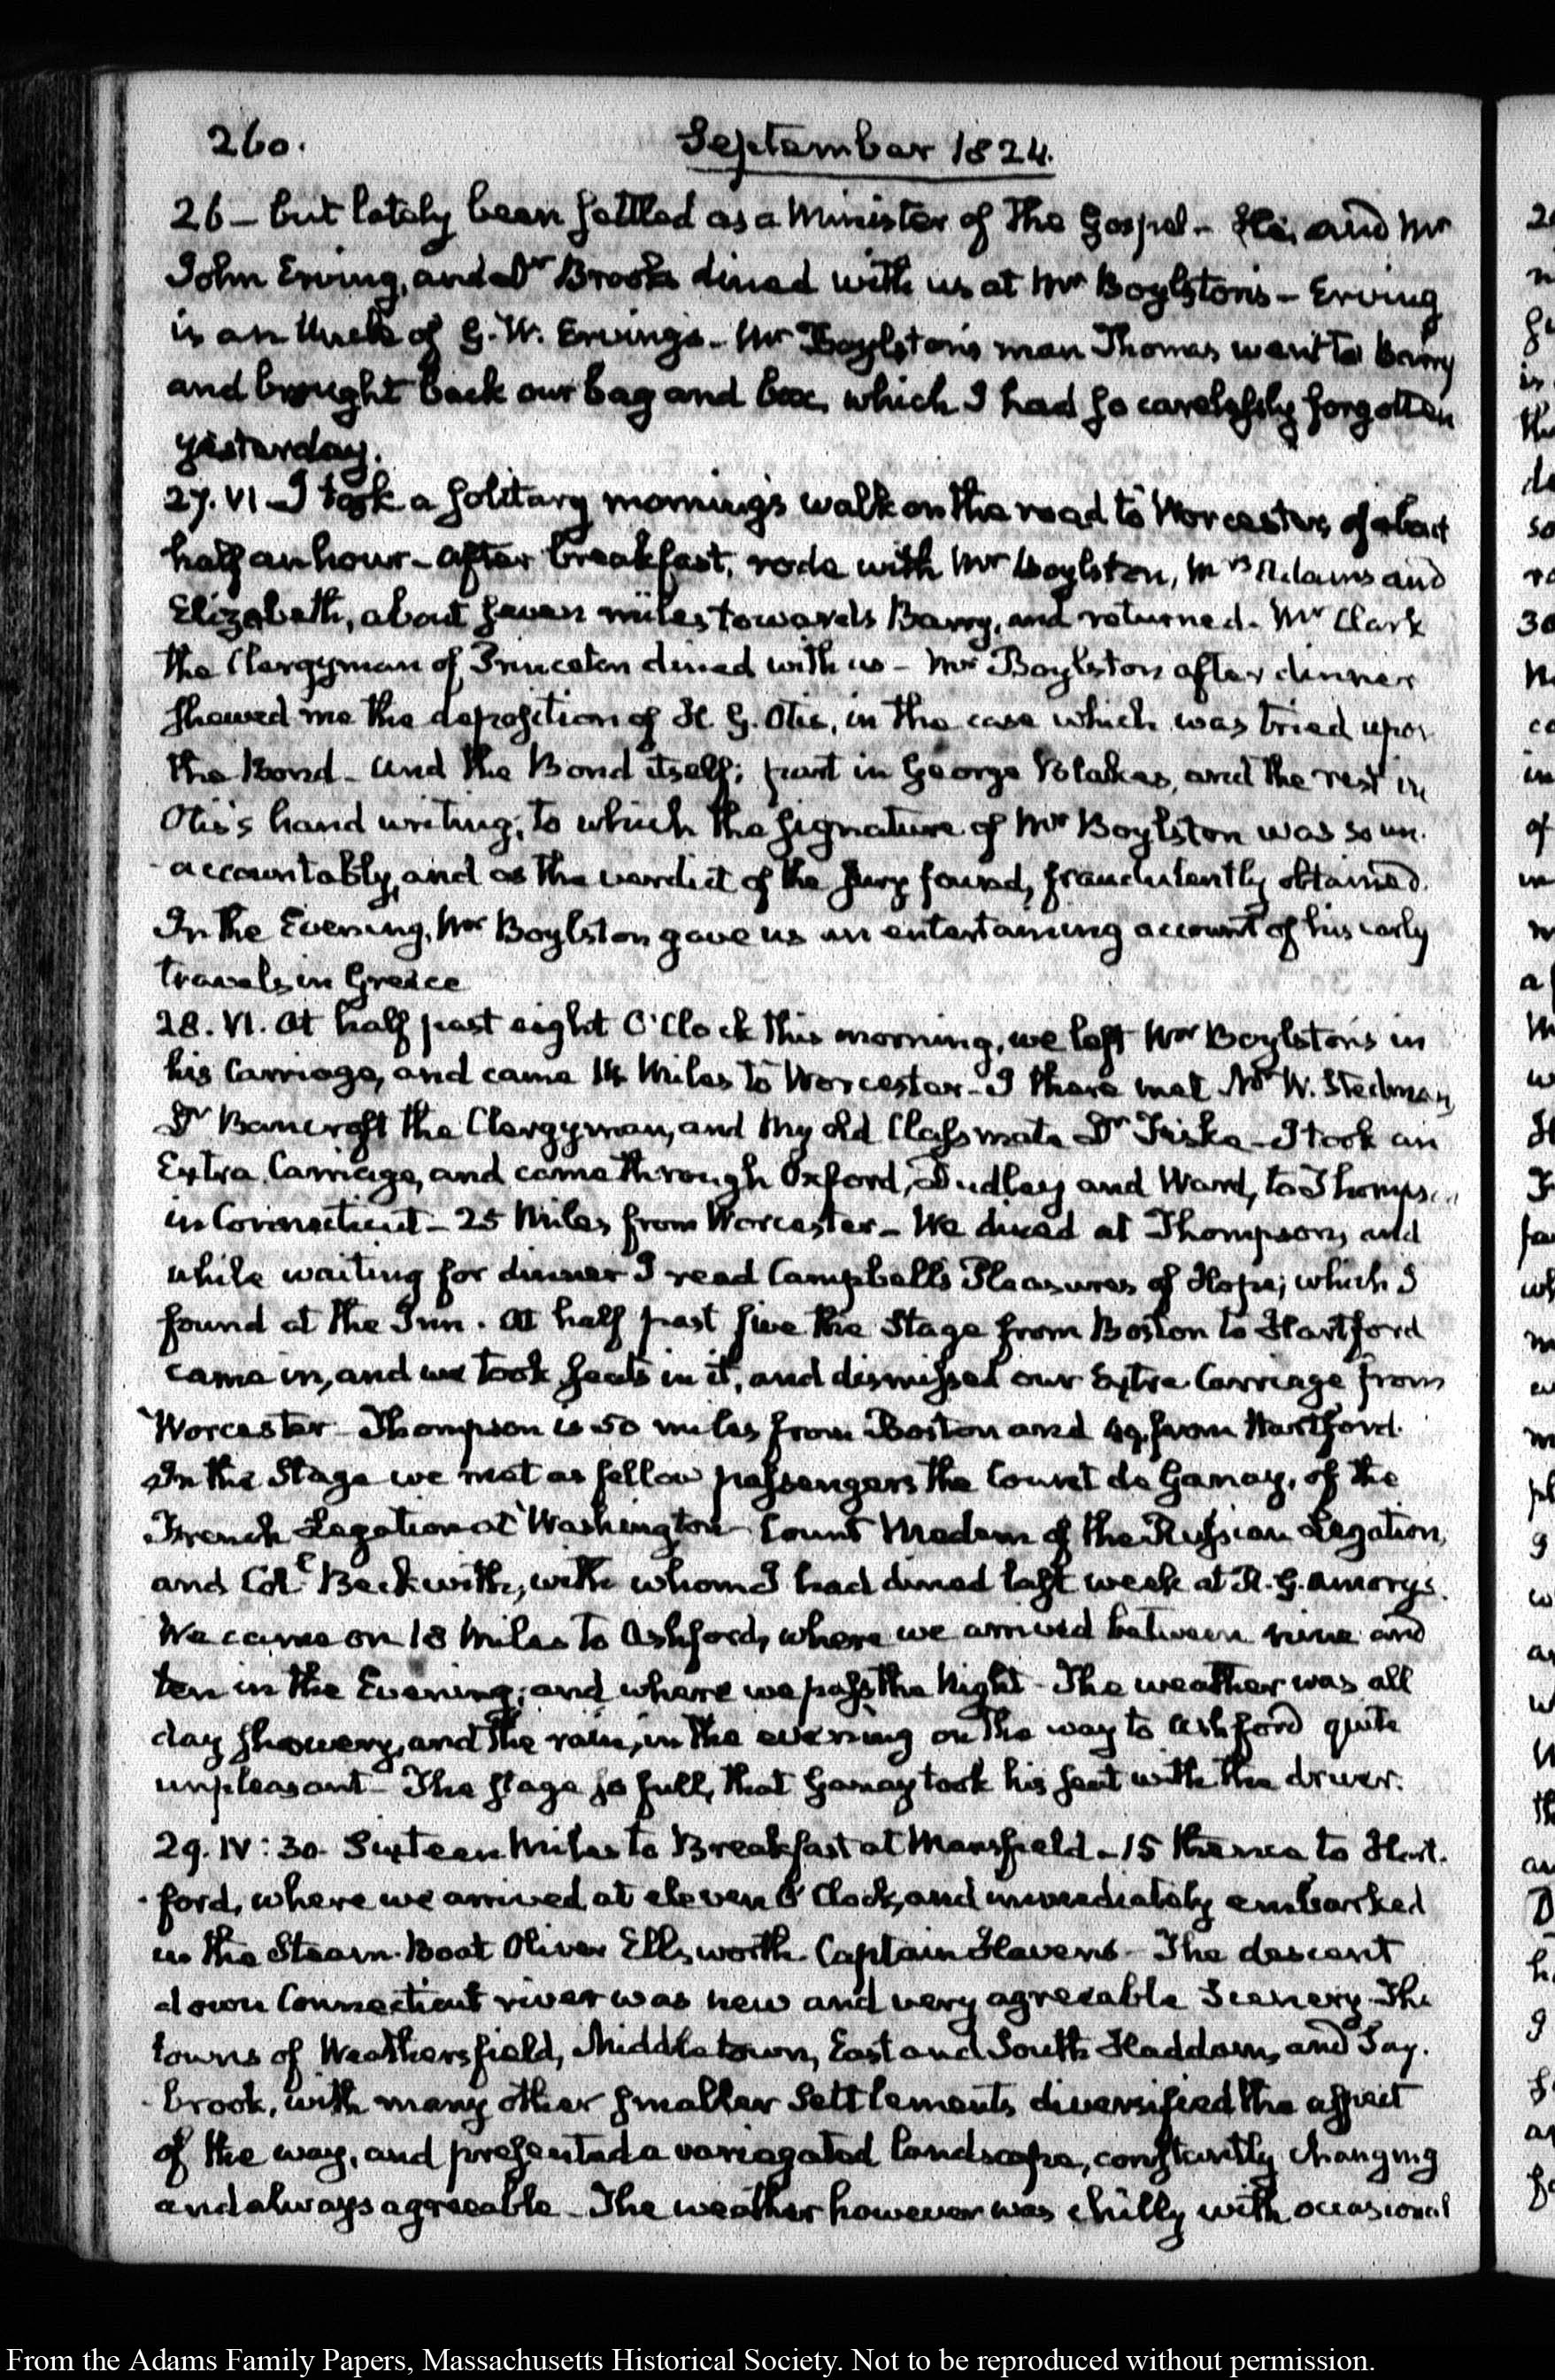 260.
September 1824.
26 – but lately been settled as a Minister of the Gospel – He, and Mr
John Erving, and Dr Brooks dined with us at Mr Boylston's – Erving
is an Uncle of G. W. Erving's – Mr Boylston's man Thomas went to Barry
and brought back our bag and box, which I had so carelessly forgotten
yesterday.
27. VI – I took a solitary morning's walk on the road to Worcester, of about
half an hour – After breakfast, rode with Mr Boylston, Mrs Adams and
Elizabeth, about seven miles towards Barry, and returned. Mr Clark
the Clergyman of Princeton dined with us – Mr Boylston after dinner
shewed me the deposition of H. G. Otis, in the case which was tried upon
the Bond – and the Bond itself; part in George Blake's, and the rest in
Otis's hand writing; to which the signature of Mr Boylston was so un-
accountably, and as the verdict of the Jury found, fraudulently obtained.
In the Evening, Mr Boylston gave us an entertaining account of his early
travels in Greece
28. VI. At half past eight O'Clock this morning, we left Mr Boylston's in
his Carriage, and came 14 Miles to Worcester – I there met Mr W. Stedman,
Dr Bancroft the Clergyman, and my old Classmate Dr Fiske – I took an
Extra Carriage, and came through Oxford, Dudley and Ward, to Thompson
in Connecticut – 25 Miles from Worcester – We dined at Thompson, and
while waiting for dinner I read Campbell's Pleasures of Hope; which I
found at the Inn. At half past five the Stage from Boston to Hartford
came in, and we took seats in it, and dismissed our Extra Carriage from
Worcester – Thompson is 50 miles from Boston and 49 from Hartford.
In the Stage we met as fellow passengers the Count de Ganay, of the
French Legation at Washington – Count Medem of the Russian Legation,
and Coll Beckwith, with whom I had dined last week at R. G. Amory's.
We came on 18 Miles to Ashford, where we arrived between nine and
ten in the Evening; and where we pass the Night – The weather was all
day showery, and the rain, in the evening on the way to Ashford quite
unpleasant – The stage so full, that Ganay took his seat with the driver.
29. IV: 30. Sixteen Miles to Breakfast at Mansfield – 15 thence to Hart-
ford, where we arrived at eleven O'Clock, and immediately embarked
in the Steam-Boat Oliver Ellsworth – Captain Havens – The descent
down Connecticut river was new and very agreeable Scenery. The
towns of Weathersfield, Middletown, East and South Haddam, and Say-
brook, with many other smaller Settlements diversified the aspect
of the way, and presented a variegated landscape, constantly changing
and always agreeable – The weather however was chilly with occasional
From the Adams Family Papers, Massachusetts Historical Society. Not to be reproduced without permission.